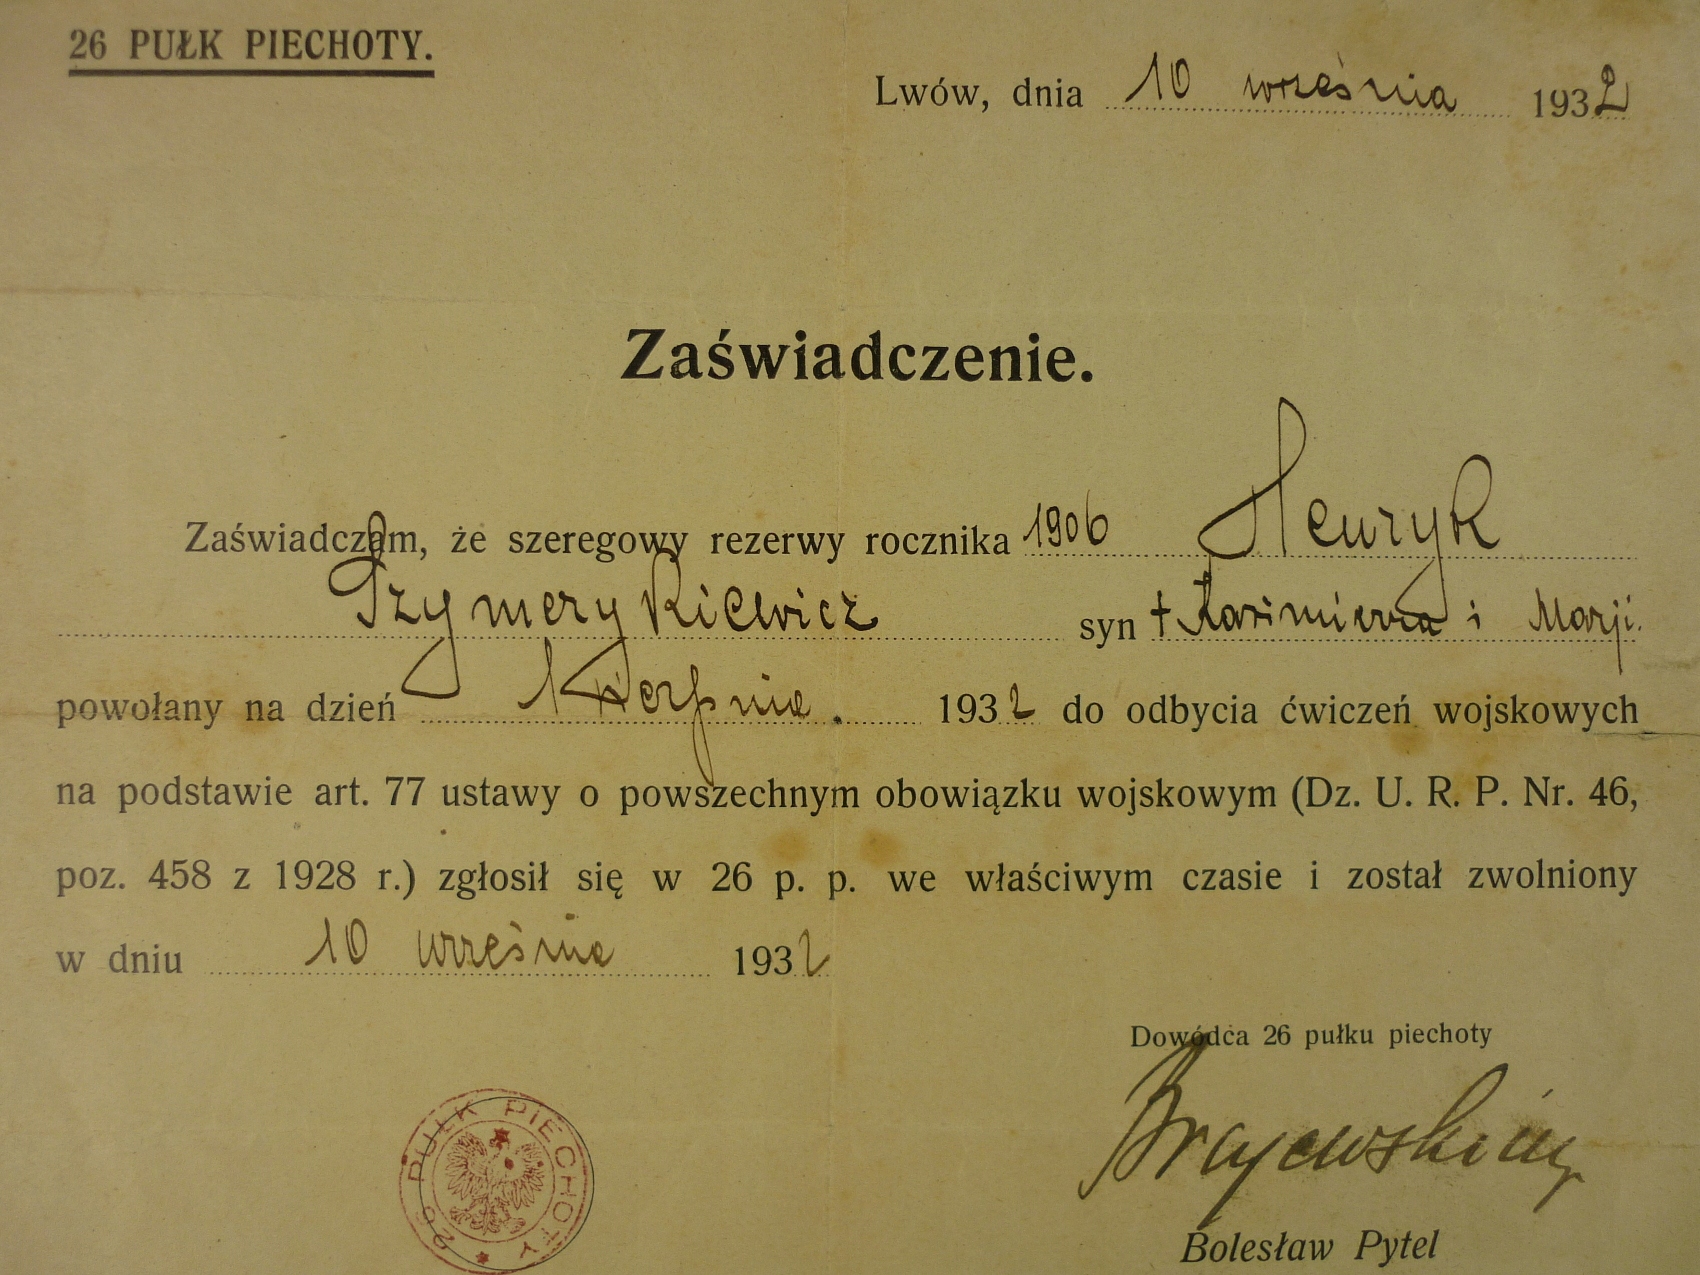 26 PUŁK PIECHOTY.
Lwów, dnia 10 września 1932
Zaświadczenie.
Zaświadczam, że szeregowy rezerwy rocznika 1906 Henryk
Szymerykiewicz syn † Kazimierza i Marji.
powołany na dzień 1 sierpnia. 1932 do odbycia ćwiczeń wojskowych
na podstawie art. 77 ustawy o powszechnym obowiązku wojskowym (Dz. U. R. P. Nr. 46,
poz. 458 z 1928 r.) zgłosił się w 26 p. p. we właściwym czasie i został zwolniony
w dniu 10 września 1932
Dowódca 26 pułku piechoty
26 PUŁK PIECHOTY
Bolesław Pytel